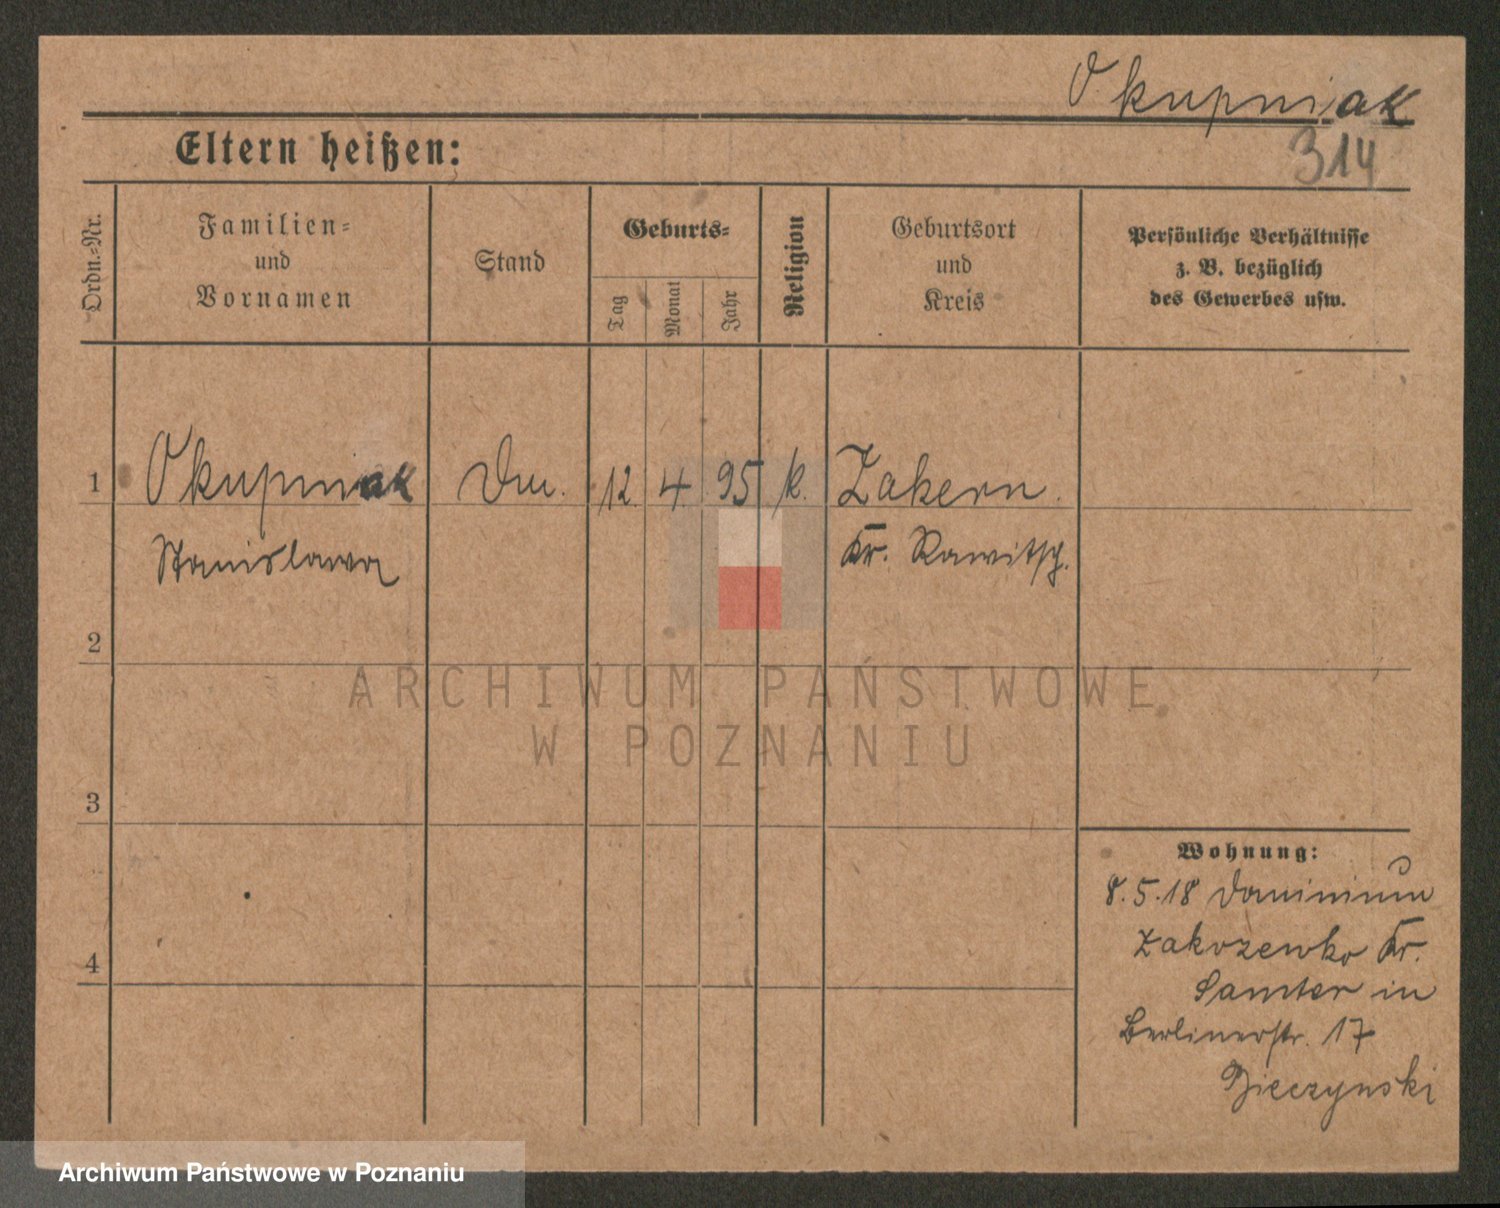 Okupniak
314
Eltern heißen:
Ordn.-Nr.
Familien-
und
Vornamen
Stand
Geburts-
Tag
Monat
Jahr
Religion
Geburtsort
und
Kreis
Persönliche Verhältnisse
z. B. bezüglich
des Gewerbes usw.
1 Okupniak 12. 4. 95 k. Zakern.
Stanislawa Kr. Rawitsch.
2
3
4
Wohnung:
8.5.18 Dominium
Zakrzewko Kr.
Samter in
Berlinerstr. 17
Bieczynski
ARCHIWUM PAŃSTWOWE
W POZNANIU
Archiwum Państwowe w Poznaniu